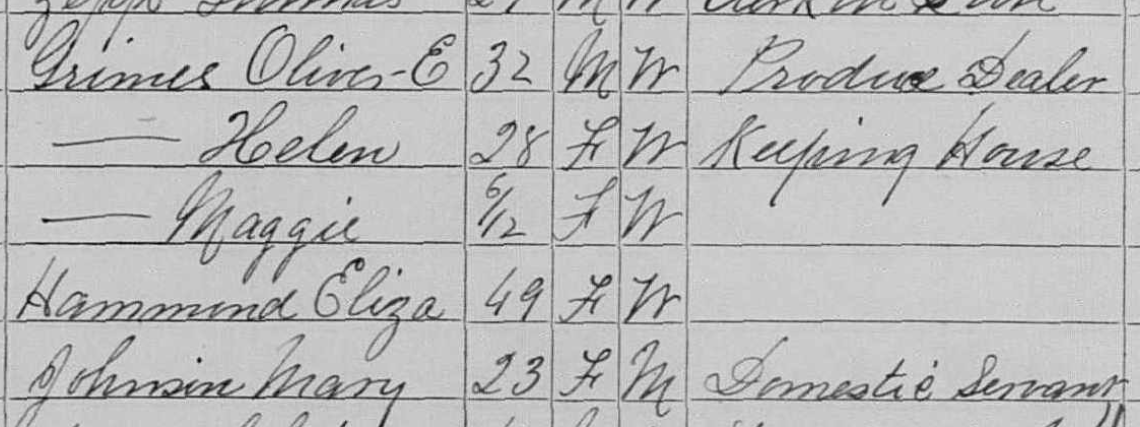 Grimes Oliver-E 32 M W Produce Dealer
— Helen 28 F W Keeping House
— Maggie 6/12 F W
Hammond Eliza 49 F W
Johnson Mary 23 F M Domestic Servant